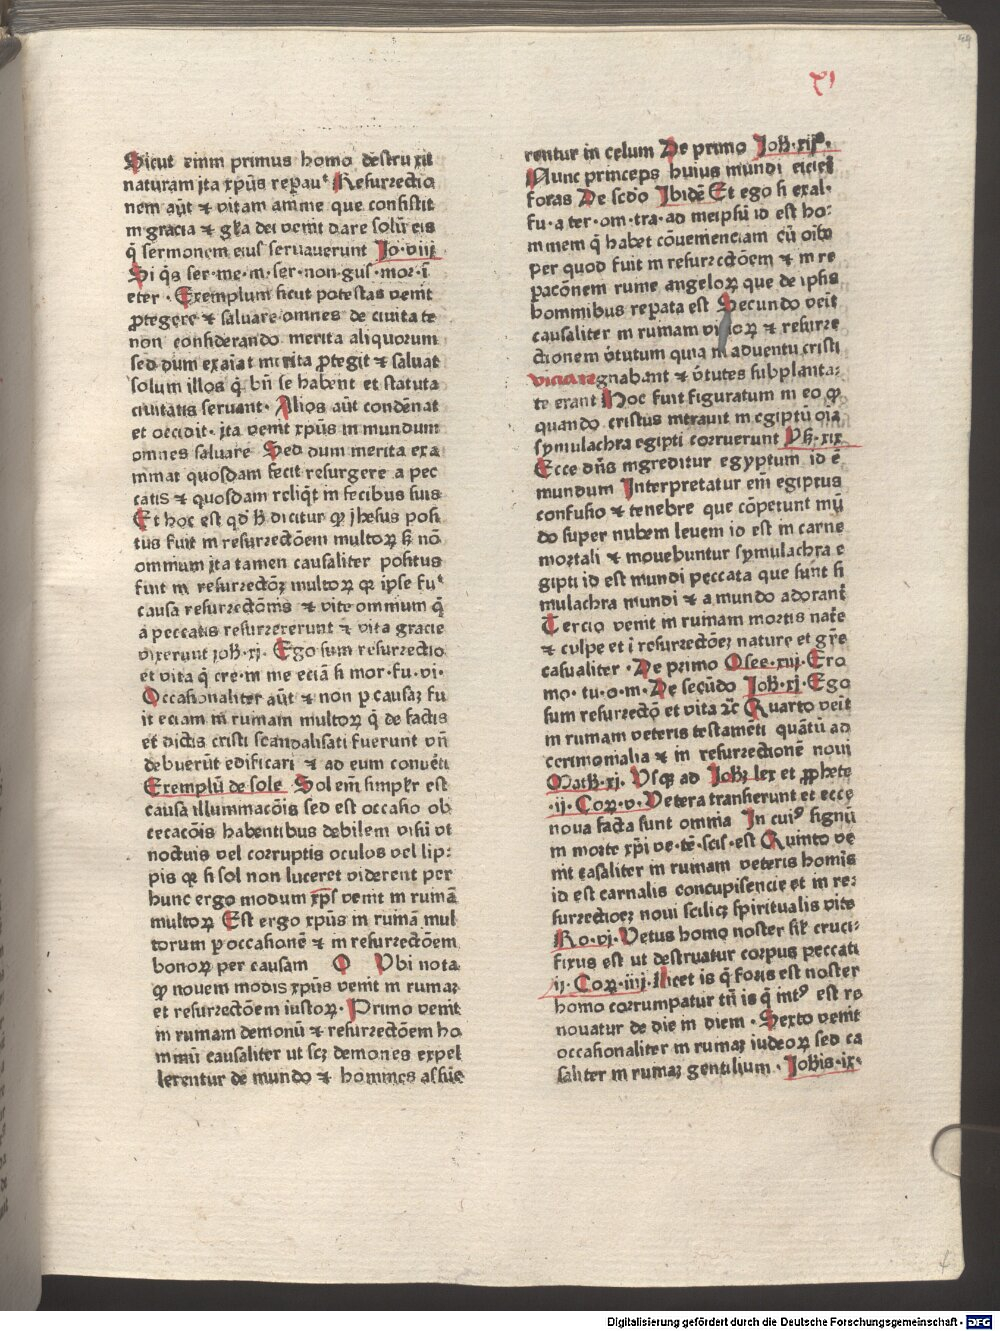 xi
Sicut enim primus homo destruxit
naturam ita xp̄us repau᷒ Resurrectio
nem aūt ⁊ vitam anime que consistit
in gracia ⁊ gl̄ia dei venit dare solū eis
q̄ sermonem eius seruauerunt Jo·viij
Si q̄s ser·me·m·ser·non·gus·mor·ī
eter · Exemplum sicut potestas venit
ꝓtegere ⁊ saluare omnes de ciuita te
non considerando merita aliquorum
sed dum exaīat merita ꝓtegit ⁊ saluat
solum illos q̄ bn̄ se habent et statuta
ciuitatis seruant· Alios aūt condēnat
et occidit· ita venit xp̄us in mundum
omnes saluare Sed dum merita exa
minat quosdam fecit resurgere a pec
catis ⁊ quosdam reliq̄t in fecibus suis
Et hoc est qd̄ h̄ dicitur ꝙ jhesus posi
tus fuit in resurrectōem multoꝝ s̄ nō
omnium ita tamen causaliter positus
fuit in resurrectōeꝫ multoꝝ qꝛ ip̄se fu᷒
causa resurrectōnis ⁊ vite omnium q̄
a peccatis resurrexerunt ⁊ vita gracie
vixerunt joh̄·xj· Ego sum resurrectio
et vita q̄ cre·in me eciā si mor·fu·vi·
Occasionaliter aūt ⁊ non ꝑ causaꝫ fu
it eciam in ruinam multoꝝ q̄ de factis
et dictis cristi scandalisati fuerunt vn̄
debuerūt edificari ⁊ ad eum conuēti
Exemplū de sole Sol em̄ simplr̄ est
causa illuminacōis sed est occasio ob
cecacōis habentibus debilem visū vt
noctuis vel corruptis oculos vel lip⸗
pis qꝛ si sol non luceret viderent per
hunc ergo modum xp̄s venit in ruinā
multoꝝ Est ergo xp̄us in ruinā mul
torum ꝑ occasionē ⁊ in resurrectōem
bonoꝝ per causam Q Vbi nota
ꝙ nouem modis xp̄us venit in ruinaꝫ
et resurrectōem iustoꝝ· Primo venit
in ruinam demonū ⁊ resurrectōem ho
minū causaliter ut scꝫ demones expel
lerentur de mundo ⁊ homines assūe
rentur in celum De primo Joh̄·xij°·
Nunc princeps huius mundi eiciet᷒
foras De scdo Jbidē Et ego si exal·
fu·a ter·om·tra·ad meipsū id est ho⸗
minem q̄ habet cōuenienciam cū oīb᷒
per quod fuit in resurrectōem ⁊ in re
ꝑacōnem ruine angeloꝝ que de ipsis
hominibus reꝑata est Secundo veīt
causaliter in ruinam vicioꝝ ⁊ resurre
ctionem v̄tutum quia in aduentu cristi
vicia regnabant ⁊ v̄tutes subplanta⸗
te erant Hoc fuit figuratum in eo ꝙ
quando cristus intrauit in egiptū oīa
symulachra egipti corruerunt Ys̄·xix
Ecce dn̄s ingreditur egyptum id ē
mundum Interpretatur em̄ egiptus
confusio ⁊ tenebre que cōpetunt mū
do super nubem leuem id est in carne
mortali ⁊ mouebuntur symulachra e
gipti id est mundi peccata que sunt si
mulachra mundi ⁊ a mundo adorant᷒
Tercio venit in ruinam mortis nat̄e
⁊ culpe et ī resurrectōeꝫ nature et gr̄e
casualiter · De primo Osee·xiij·Ero
mo·tu·o·m·De secūdo Joh̄·xj·Ego
sum resurrectō et vita ꝛc̄ Quarto veīt
in ruinam veteris testamēti quātū ad
cerimonialia ⁊ in resurrectionē noui
Math̄·xj· Vsqꝫ ad Joh̄eꝫ lex et ꝓphete
·ij·Coꝝ·v·Vetera transierunt et ecce
noua facta sunt omnia In cui᷒ signū
in morte xp̄i ve·tē·scis·est Quinto ve
nit casaliter in ruinam veteris homīs
id est carnalis concupisencie et in re⸗
surrectioeꝫ noui scilicꝫ spiritualis vite
Ro·vj·Vetus homo noster sil̄ cruci⸗
fixus est ut destruatur corpus peccati
ij·Coꝝ·iiij·Licet is q̄ foris est noster
homo corrumpatur tn̄ is q̄ int᷒ est re
nouatur de die in diem · Sexto venit
occasionaliter in ruinaꝫ iudeoꝝ sed ca
saliter in ruinaꝫ gentilium · Joh̄is·ix·
Digitalisierung gefördert durch die Deutsche Forschungsgemeinschaft - DFG